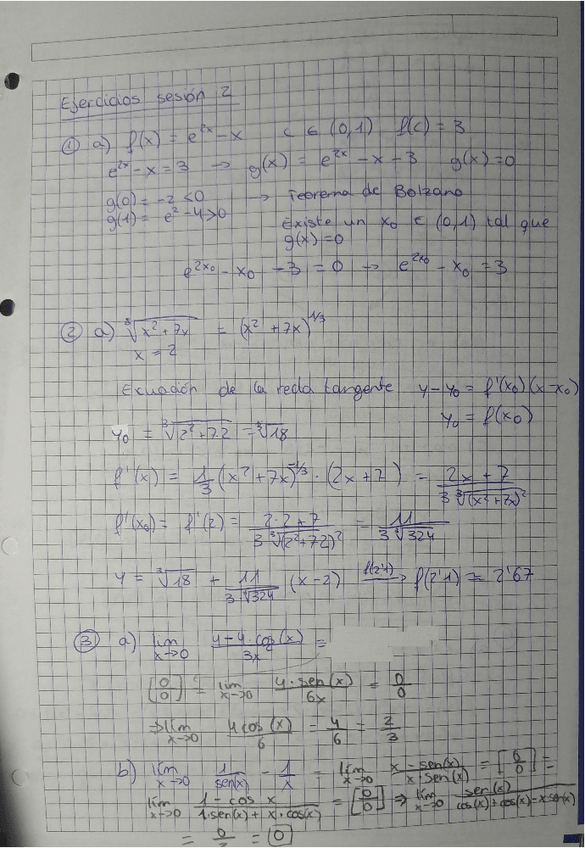 Ejercicios sesión 2
① a) f(x) = e^(2x) - x   c ∈ (0,1)   f(c) = 3
e^(2x) - x = 3 → g(x) = e^(2x) - x - 3   g(x) = 0
g(0) = -2 < 0   → Teorema de Bolzano
g(1) = e² - 4 > 0
Existe un x₀ ∈ (0,1) tal que
g(x) = 0
e^(2x₀) - x₀ - 3 = 0 → e^(2x₀) - x₀ = 3
② a) ∛(x² + 7x) = (x² + 7x)^(1/3)
x = 2
Ecuación de la recta tangente   y - y₀ = f'(x₀)(x - x₀)
y₀ = f(x₀)
y₀ = ∛(2² + 7·2) = ∛18
f'(x) = 1/3 (x² + 7x)^(-1/3) · (2x + 7) = (2x + 7)/(3 ∛(x² + 7x)²)
f'(x₀) = f'(2) = (2·2 + 7)/(3 ∛(2² + 7·2)²) = 11/(3 ∛324)
y = ∛18 + 11/(3·∛324) (x - 2) —f(2'1)→ f(2'1) ≈ 2'67
③ a) lim x→0 (4 - 4·cos(x))/3x =
[0/0] = lim x→0 (4·sen(x))/6x = 0/0
⇒ lim x→0 (4cos(x))/6 = 4/6 = 2/3
b) lim x→0 1/sen(x) - 1/x = lim x→0 (x - sen(x))/(x·sen(x)) = [0/0] =
lim x→0 (1 - cos x)/(1·sen(x) + x·cos(x)) = [0/0] ⇒ lim x→0 sen(x)/(cos(x) + cos(x) - x sen(x))
= 0/2 = 0